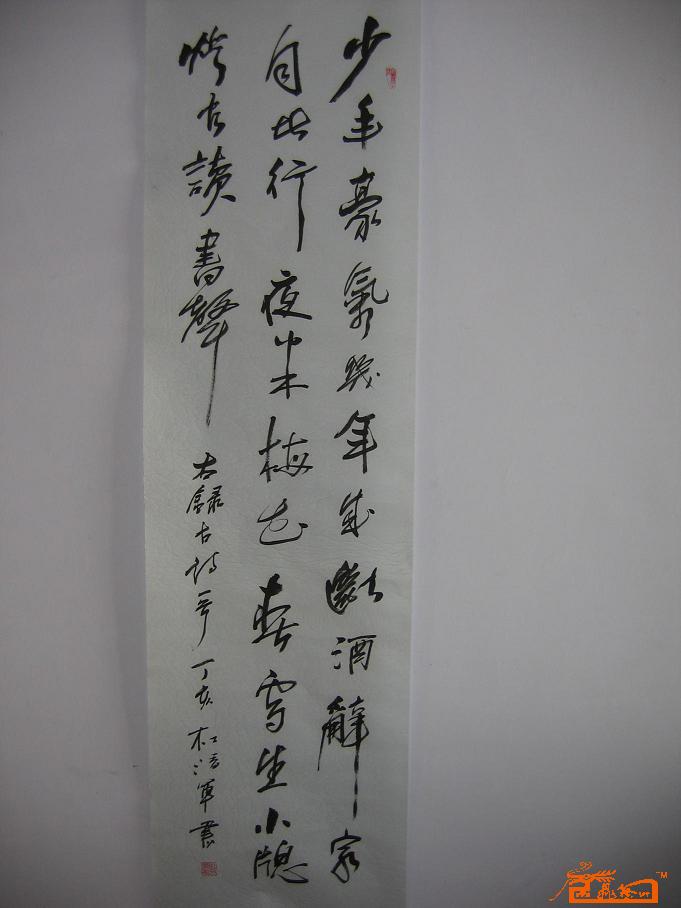 少年豪氣幾年成斷酒辭家
自此行夜半梅花春雪里小牕
燈火讀書聲
右錄古詩一首 丁亥 杜 軍書